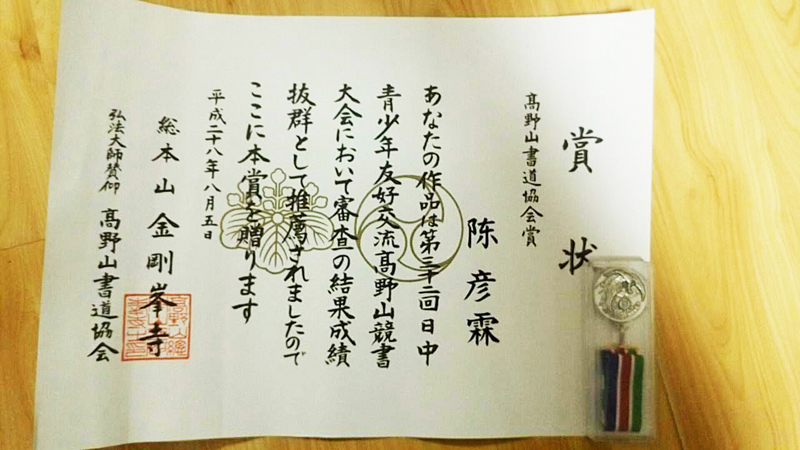 賞状
高野山書道協会賞
陈彦霖
あなたの作品は第三十二回日中
青少年友好交流高野山競書
大会において審査の結果成績
抜群として推薦されましたので
ここに本賞を贈ります
平成二十八年八月五日
総本山金剛峯寺
弘法大師賛仰 高野山書道協会